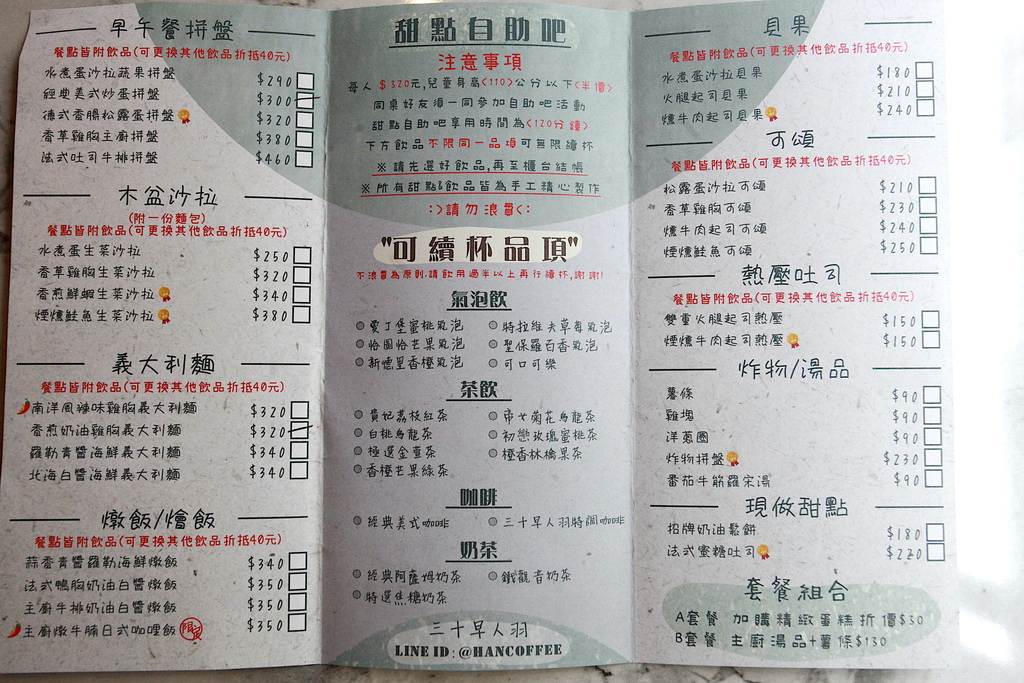 早午餐拼盤
餐點皆附飲品(可更換其他飲品折抵40元)
水煮蛋沙拉蔬果拼盤 $290
經典美式炒蛋拼盤 $300
德式香腸松露蛋拼盤 $320
香草雞胸主廚拼盤 $380
法式吐司牛排拼盤 $460
木盆沙拉
(附一份麵包)
餐點皆附飲品(可更換其他飲品折抵40元)
水煮蛋生菜沙拉 $250
香草雞胸生菜沙拉 $320
香煎鮮蝦生菜沙拉 $340
煙燻鮭魚生菜沙拉 $380
義大利麵
餐點皆附飲品(可更換其他飲品折抵40元)
南洋風辣味雞胸義大利麵 $320
香煎奶油雞胸義大利麵 $320
羅勒青醬海鮮義大利麵 $340
北海白醬海鮮義大利麵 $340
燉飯/燴飯
餐點皆附飲品(可更換其他飲品折抵40元)
蒜香青醬羅勒海鮮燉飯 $340
法式鴨胸奶油白醬燉飯 $350
主廚牛排奶油白醬燉飯 $350
主廚燉牛腩日式咖哩飯 限定 $350
甜點自助吧
注意事項
每人$320元,兒童身高(110)公分以下(半價)
同桌好友須一同參加自助吧活動
甜點自助吧享用時間為(120分鐘)
下方飲品不限同一品項可無限續杯
※請先選好飲品,再至櫃台結帳
※所有甜點&飲品皆為手工精心製作
:>請勿浪費<:
"可續杯品項"
不浪費為原則,請飲用過半以上再行續杯,謝謝!
氣泡飲
愛丁堡蜜桃氣泡
特拉維夫草莓氣泡
恰圖恰芒果氣泡
聖保羅百香氣泡
新德里香橙氣泡
可口可樂
茶飲
貴妃荔枝紅茶
帝女菊花烏龍茶
白桃烏龍茶
初戀玫瑰蜜桃茶
極選金萱茶
橙香林檎果茶
香橙芒果綠茶
咖啡
經典美式咖啡
三十早人羽特調咖啡
奶茶
經典阿薩姆奶茶
鐵觀音奶茶
特選焦糖奶茶
三十早人羽
LINE ID:@HANCOFFEE
貝果
餐點皆附飲品(可更換其他飲品折抵40元)
水煮蛋沙拉貝果 $180
火腿起司貝果 $210
燻牛肉起司貝果 $240
可頌
餐點皆附飲品(可更換其他飲品折抵40元)
松露蛋沙拉可頌 $210
香草雞胸可頌 $230
燻牛肉可頌 $240
煙燻鮭魚可頌 $250
熱壓吐司
餐點皆附飲品(可更換其他飲品折抵40元)
雙重火腿起司熱壓 $150
煙燻牛肉起司熱壓 $150
炸物/湯品
薯條 $90
雞塊 $90
洋蔥圈 $90
炸物拼盤 $230
番茄牛筋羅宋湯 $90
現做甜點
招牌奶油鬆餅 $180
法式蜜糖吐司 $220
套餐組合
A套餐 加購精緻蛋糕折價$30
B套餐 主廚湯品+薯條$130